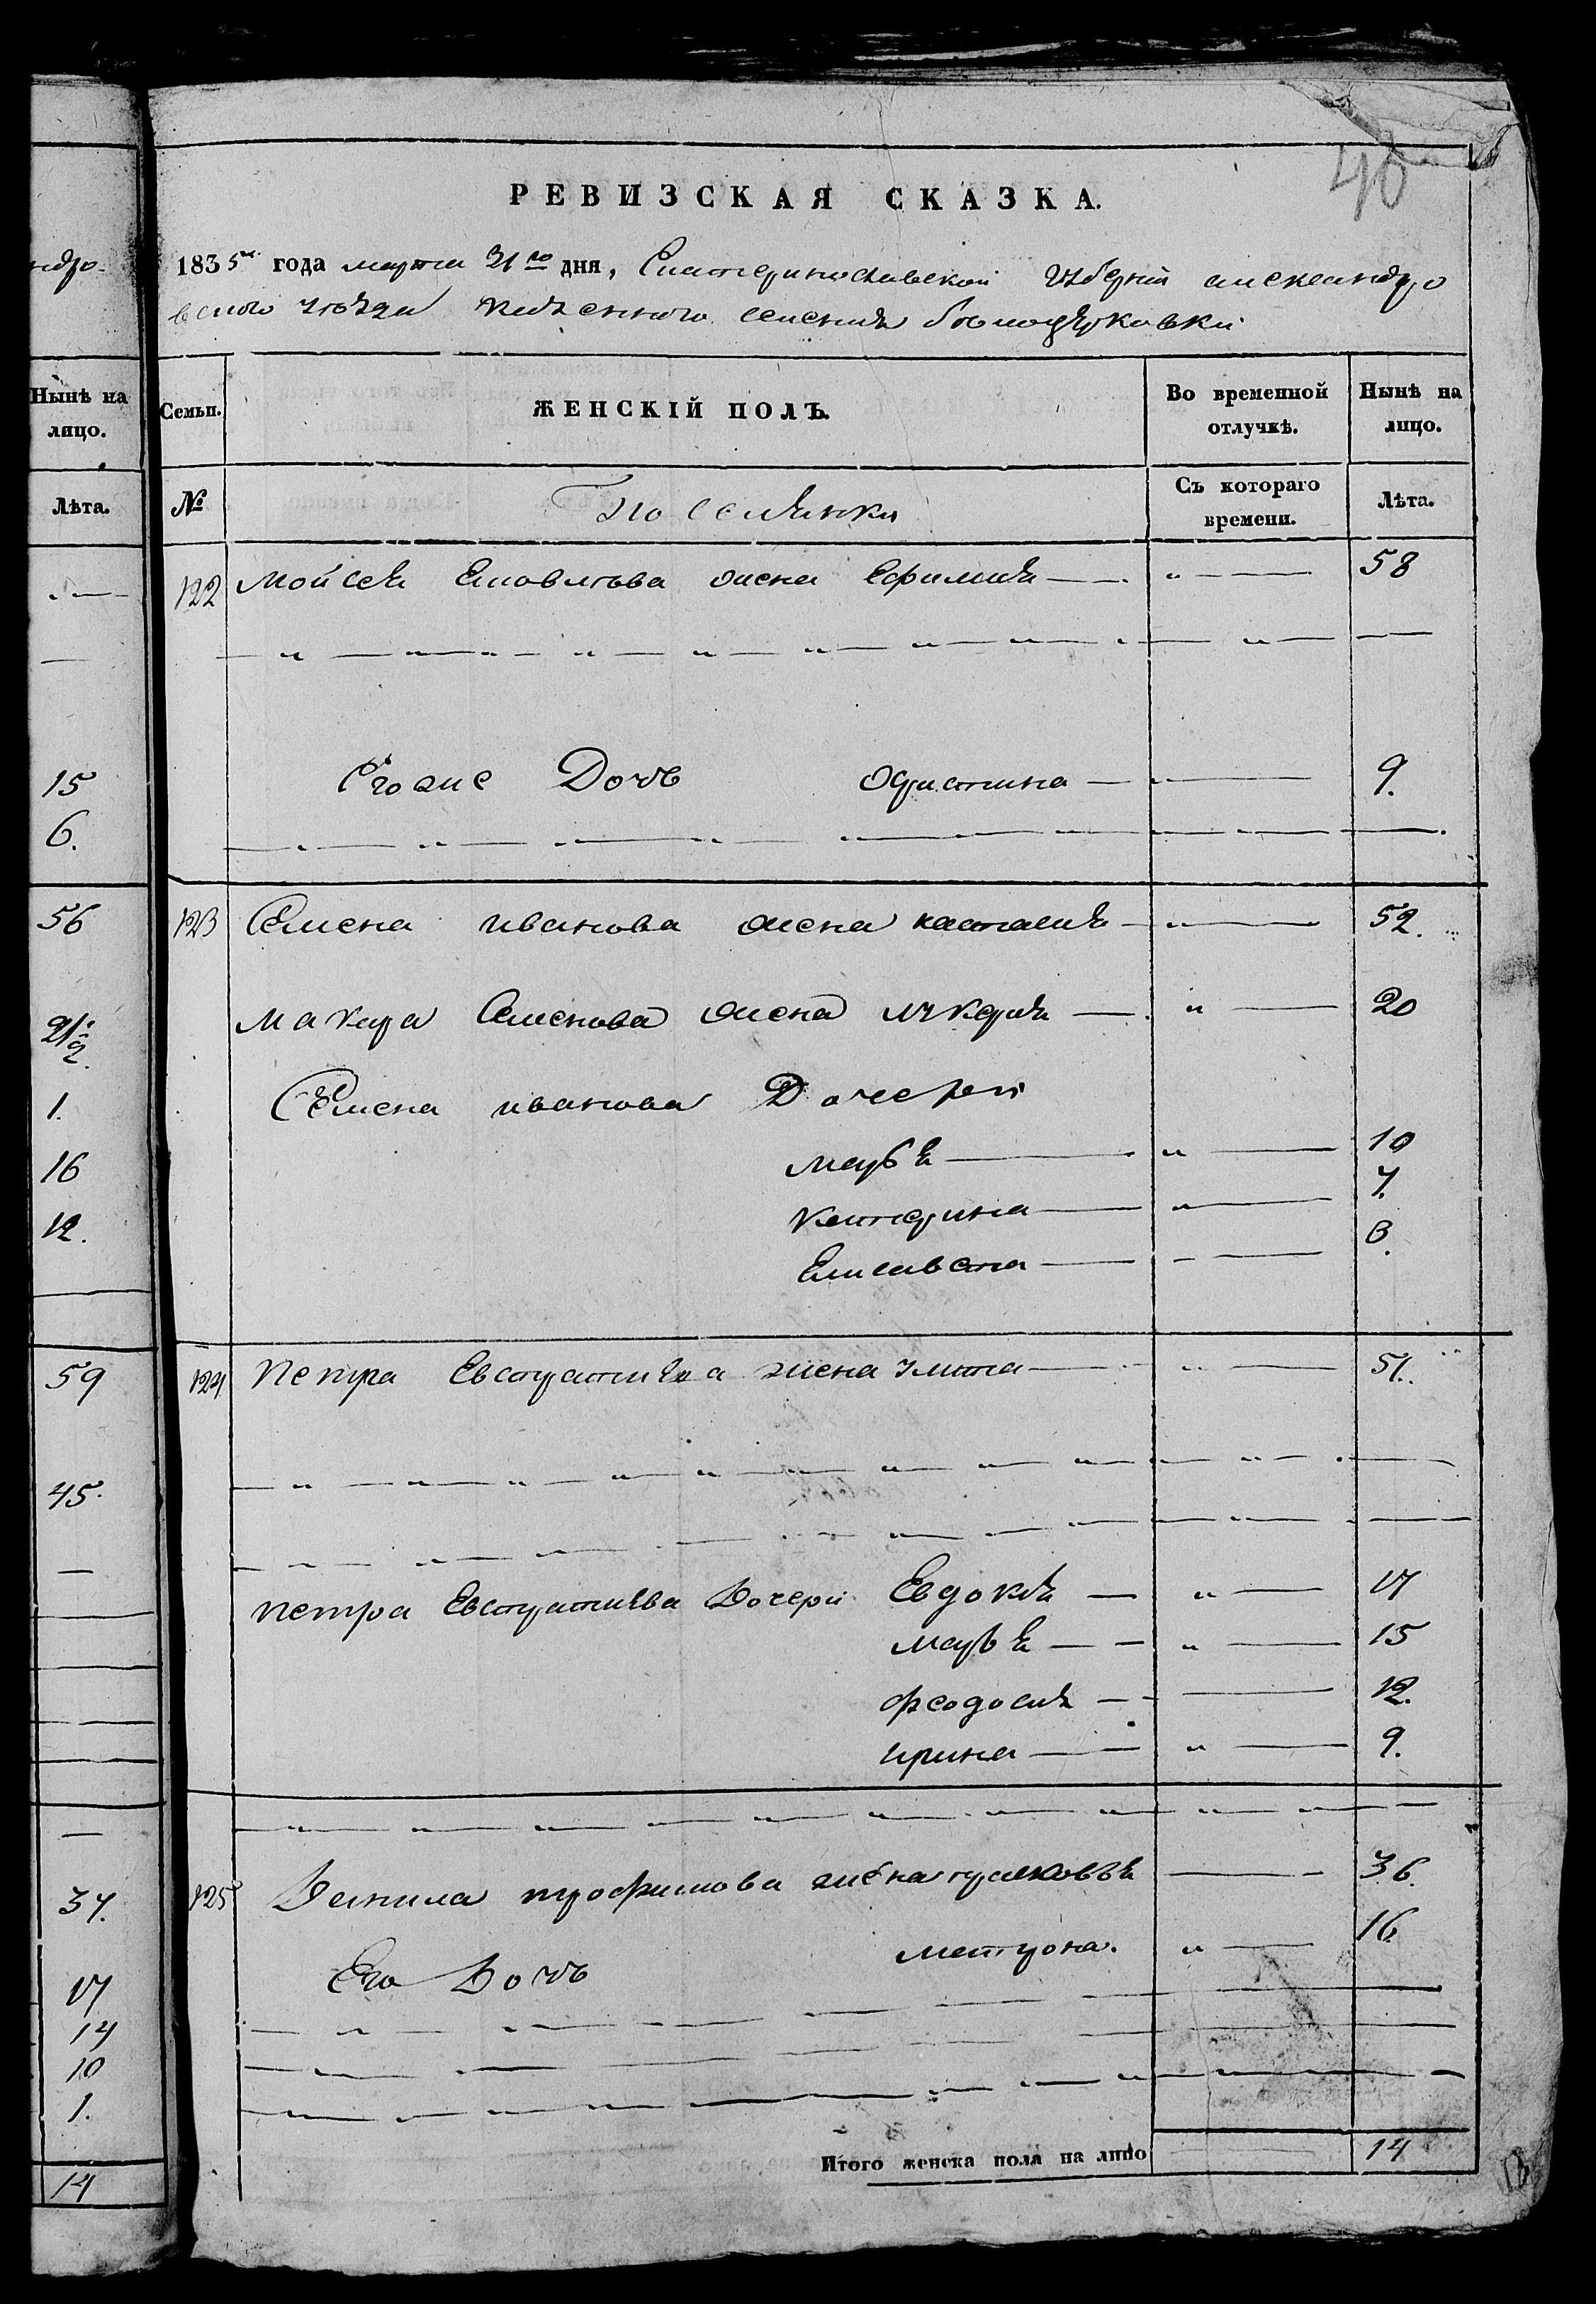 40
РЕВИЗСКАЯ СКАЗКА.
1835го года марта 31го дня, Екатеринославской губерніи александро
вского уѣзда казенного селенія бѣлоцерковки
ндро-
Нынѣ на лицо.
Лѣта.
15
6.
56
21:2
1.
16
12.
59
45.
37.
17
14
10
1.
14
Семьи. ЖЕНСКІЙ ПОЛЪ. Во временной отлучкѣ. Нынѣ на лицо.
№ Поселянки Съ котораго времени. Лѣта.
122 Мойсея жена Ефимия 58
Его же Дочь 9.
123 Семена иванова жена настасия 52.
Макара Семенова жена лукерия 20
Семена иванова Дочери
марья 10
катерина 7.
Елисавета 3.
124 Петра Евстратиева жена улита 51.
петра Евстратиева Дочери Евдокия 17
марья 15
феодосия 12.
ирина 9.
125 Данила трофимова жена 36.
Его Дочь матрона. 16.
Итого женска пола на лицо 14